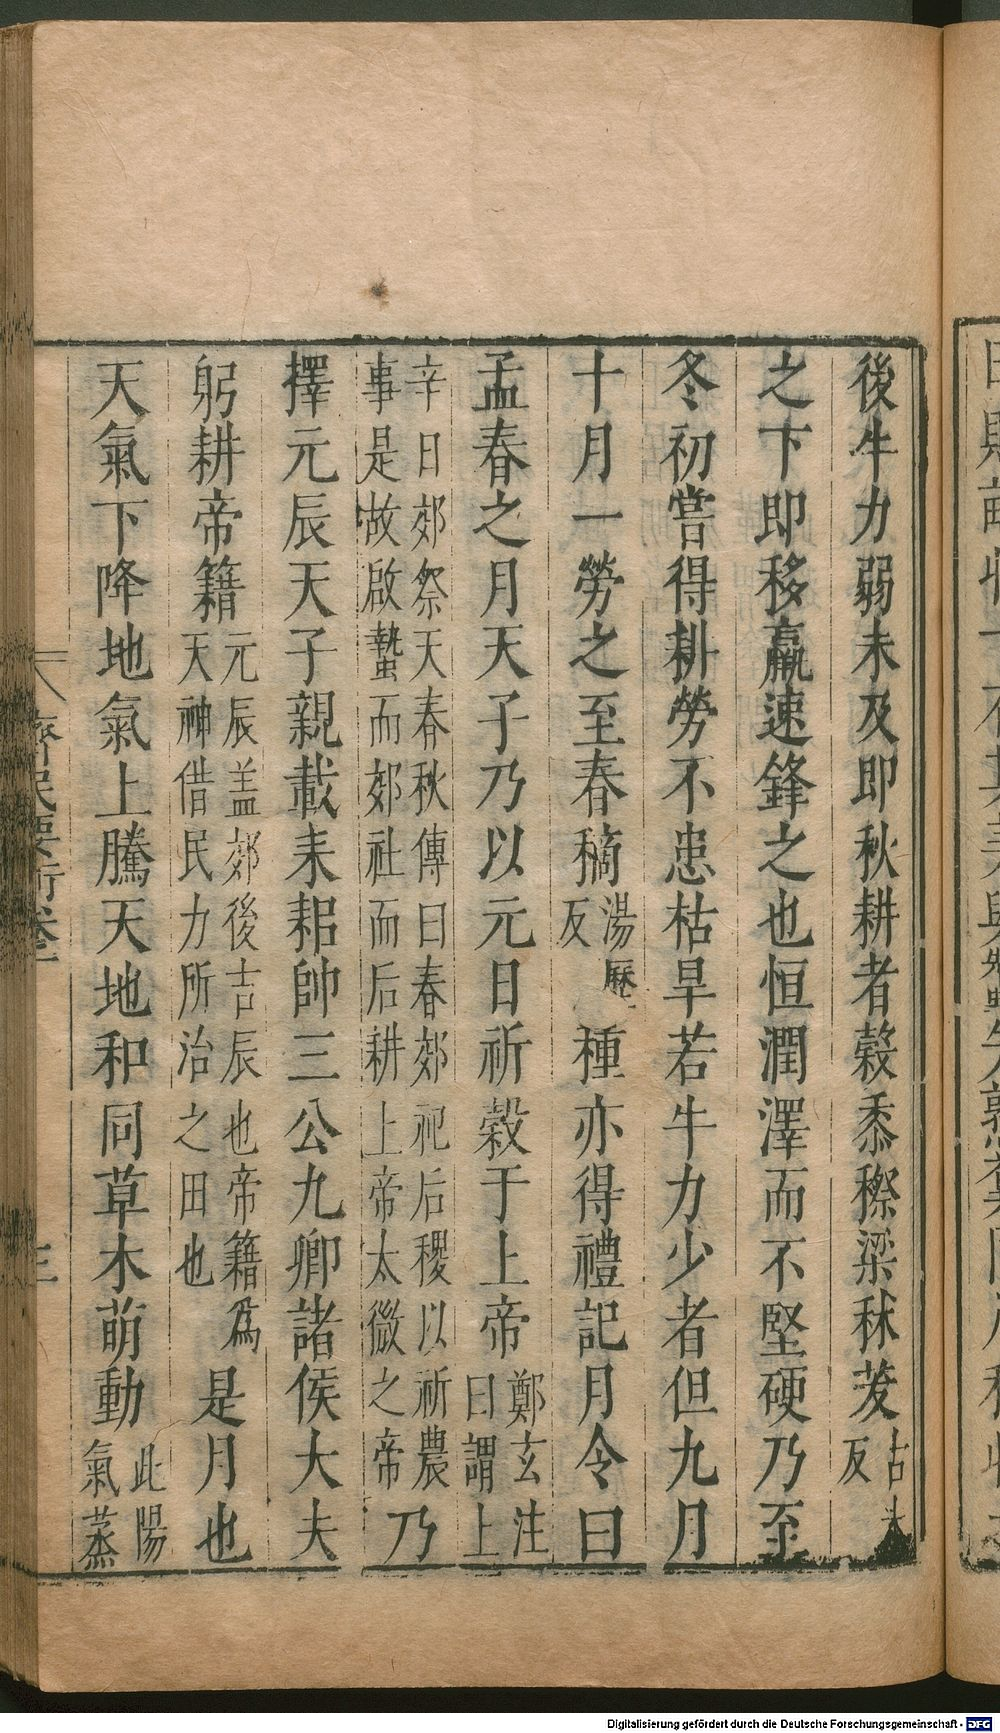 後牛力弱未及即秋耕者穀黍穄粱秫茇古夫反
之下即移羸速鋒之也恒潤澤而不堅硬乃至
冬初嘗得耕勞不患枯旱若牛力少者但九月
十月一勞之至春稿湯歷反種亦得禮記月令曰
孟春之月天子乃以元日祈穀于上帝鄭玄注曰謂上
辛日郊祭天春秋傳曰春郊祀后稷以祈農事是故啟蟄而郊社而后耕上帝太微之帝乃
擇元辰天子親載耒耜帥三公九卿諸侯大夫
躬耕帝籍元辰盖郊後吉辰也帝籍為天神借民力所治之田也是月也
天氣下降地氣上騰天地和同草木萌動此陽氣蒸
齊民要術卷一
三
Digitalisierung gefördert durch die Deutsche Forschungsgemeinschaft - DFG